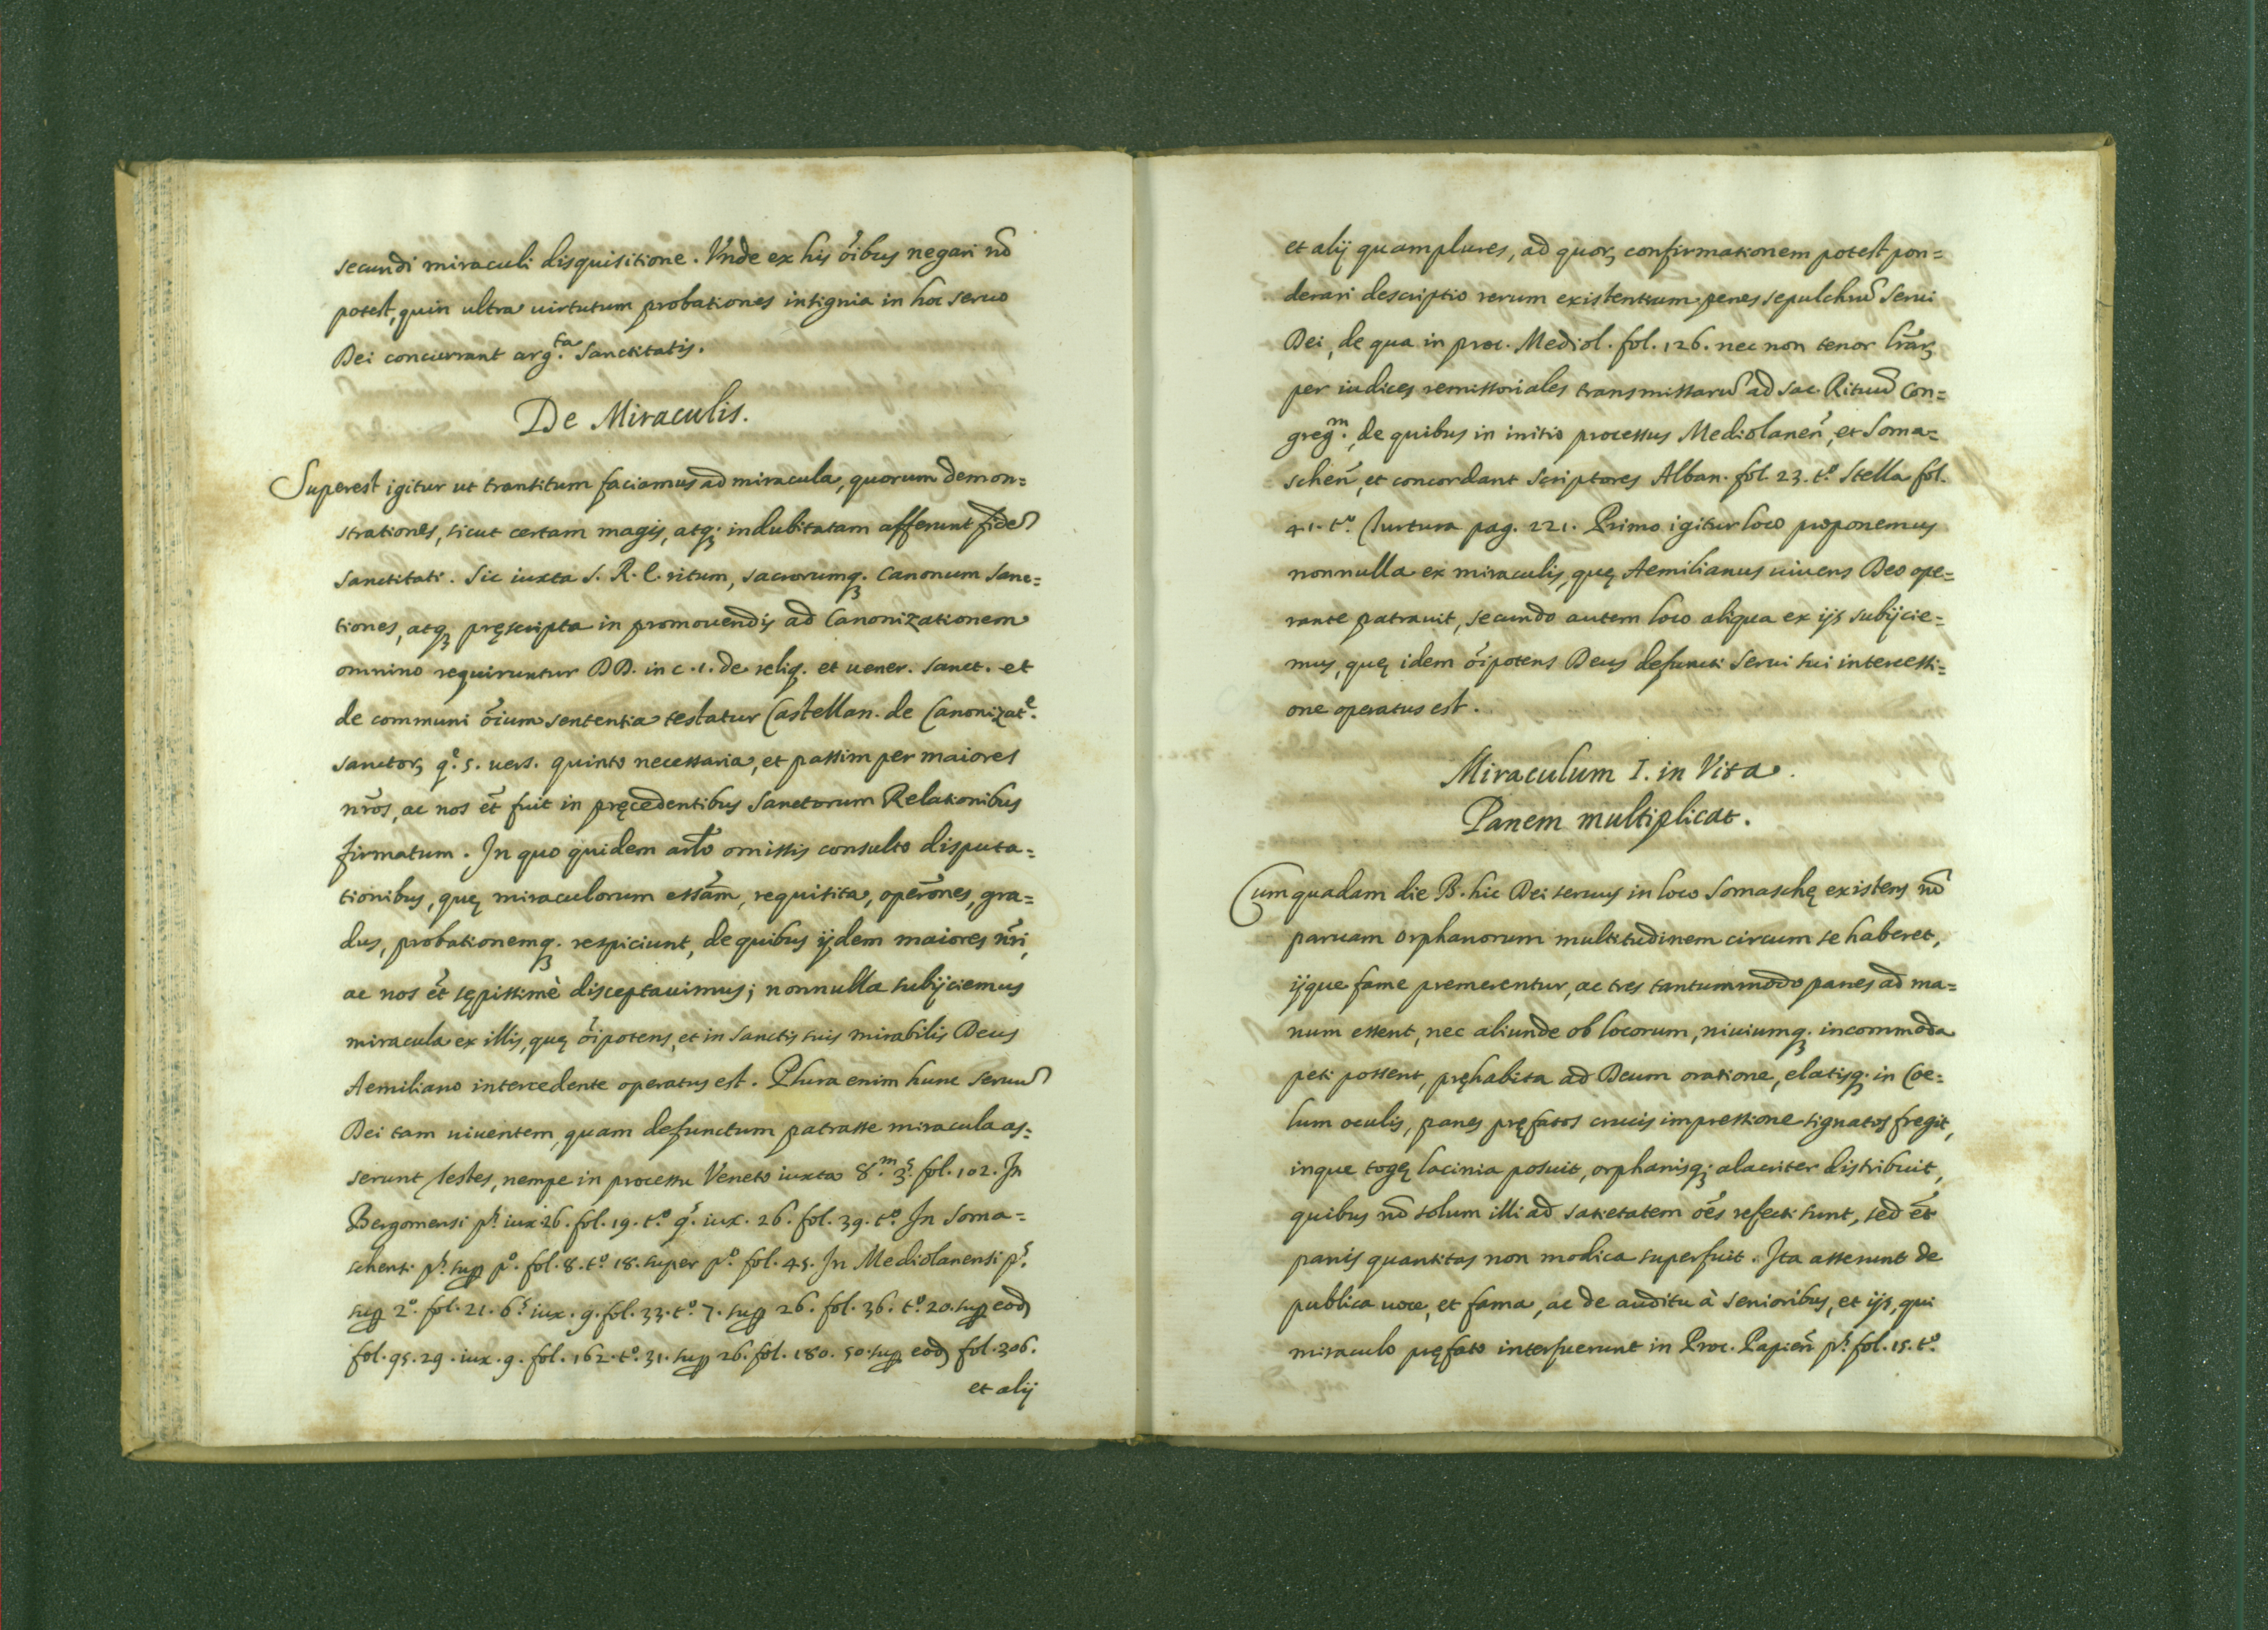 secundi miraculi disquisitione. Vnde ex his õibus negari nõ
potest, quin ultra uirtutum probationes insignia in hoc seruo
Dei concurrant arg.ta Sanctitatis.
De Miraculis.
Superest igitur ut transitum faciamus ad miracula, quorum demon=
strationes, sicut certam magis, atq; indubitatam afferunt fidẽ
Sanctitati. Sic iuxta S. R. E. ritum, sacrorumq; Canonum Sanc=
tiones, atq; pręscripta in promouendis ad Canonizationem
omnino requiruntur DD. in c. 1. de reliq. et uener. Sanct. et
de communi õium sententia testatur Castellan. de Canonizat.e
Sanctor, q.e 5. uers. quinto necessaria, et passim per maiores
nr̃os, ac nos et̃ fuit in pręcedentibus Sanctorum Relationibus
firmatum. In quo quidem artĩo omissis consulto disputa=
tionibus, quę miraculorum essãm, requisita, oper̃ones, gra=
dus, probationemq; respiciunt, de quibus ijdem maiores nr̃i,
ac nos et̃ sępissimè disceptauimus; nonnulla subijciemus
miracula ex illis, quę õipotens, et in Sanctis suis mirabilis Deus
Aemiliano intercedente operatus est. Plura enim hunc seruũ
Dei tam uiuentem, quam defunctum patrasse miracula as=
serunt Testes, nempe in processu Veneto iuxta 8.m 3.s fol. 102. In
Bergomensi p.s iux. 26. fol. 19. t.o 9.s iux. 26. fol. 39. t.o In Soma=
schensi p.s sup p.o fol. 8. t.o 18. super p.o fol. 45. In Mediolanensi p.s
sup 2.o fol. 21. 6.s iux. 9. fol. 33. t.o 7. sup 26. fol. 36. t.o 20. sup eod
fol. 95. 29. iux. 9. fol. 162. t.o 31. sup 26. fol. 180. 50. sup eod fol. 306.
et alij
et alij quamplures, ad quor, confirmationem potest pon=
derari descriptio rerum existentium penes sepulchrũ Serui
Dei, de qua in proc. Mediol. fol. 126. nec non tenor lr̃ar,
per iudices remissoriales transmissarũ ad Sac. Rituũ Con=
greg.m, de quibus in initio processus Mediolaneñ, et Soma=
scheñ, et concordant Scriptores Alban. fol. 23. t.o Stella fol.
41. t.o Turtura pag. 221. Primo igitur loco proponemus
nonnulla ex miraculis, quę Aemilianus uiuens Deo ope=
rante patrauit, secundo autem loco aliqua ex ijs subijcie=
mus, quę idem õipotens Deus defuncti Serui sui intercessi=
one operatus est.
Miraculum I. in Vita.
Panem multiplicat.
Cum quadam die B. hic Dei seruus in loco Somaschę existens nõ
paruam orphanorum multitudinem circum se haberet,
ijque fame premerentur, ac tres tantummodo panes ad ma=
num essent, nec aliunde ob locorum, niuiumq; incommoda
peti possent, pręhabita ad Deum oratione, elatisq; in Coe=
lum oculis, panes pręfatos crucis impressione signatos fregit,
inque togę lacinia posuit, orphanisq; alacriter distribuit,
quibus nõ solum illi ad satietatem oẽs refecti sunt, sed et̃
panis quantitas non modica superfuit. Ita asserunt de
publica uoce, et fama, ac de auditu à Senioribus, et ijs, qui
miraculo pręfato interfuerunt in Proc. Papieñ p.s fol. 15. t.o